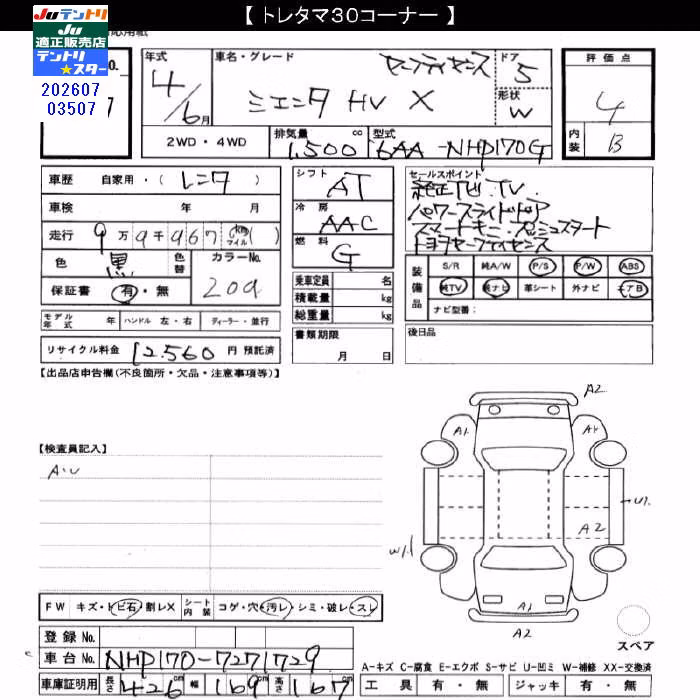 【 トレタマ30コーナー 】
Juテントリ
Ju
適正販売店
テントリ
★スター
202607
03507
年式 車名・グレード セーフティセンス ドア 5 評価点
4/6月 シエンタ HV X 形状 W 4
2WD・4WD 排気量 1,500 cc 型式 6AA-NHP170G 内装 B
車歴 自家用・(レンタ)
車検 年 月
走行 9万9千967 (km マイル)
色 黒 色替 カラーNo. 209
保証書 有・無
モデル年式 年 ハンドル 左・右 ディーラー・並行
リサイクル料金 12,560 円 預託済
シフト AT
冷房 AAC
燃料 G
乗車定員 名
積載量 kg
総重量 kg
書類期限
月 日
セールスポイント
純正ナビ.TV.
パワースライドドア
スマートキー.プッシュスタート
トヨタセーフティセンス
装備品 S/R 純A/W P/S P/W ABS
純TV 純ナビ 革シート 外ナビ エアB
ナビ型番:
後日品
【出品店申告欄(不良箇所・欠品・注意事項等)】
【検査員記入】
A・U
A2
A1 A1
U1
A2
W1
A1
A2
スペア
FW キズ・トビ石・割レX シート内装 コゲ・穴・汚レ・シミ・破レ・スレ
登録No.
車台No. NHP170-7271729
車庫証明用 長さ 426 cm 幅 169 cm 高さ 167 cm
A-キズ C-腐食 E-エクボ S-サビ U-凹ミ W-補修 XX-交換済
工具 有・無 ジャッキ 有・無